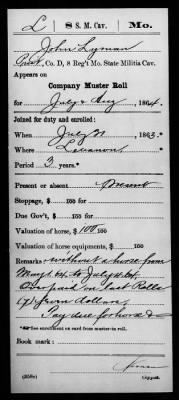 L | 8 S. M. Cav. | Mo.
John Lyman
Pvt, Co. D, 8 Reg't Mo. State Militia Cav.
Appears on
Company Muster Roll
for July & Aug, 1864.
Joined for duty and enrolled:
When July 21, 1863.
Where Lebanon
Period 3 years.*
Present or absent Present
Stoppage, $ 100 for
Due Gov't, $ 100 for
Valuation of horse, $ 100 100
Valuation of horse equipments, $ 100
Remarks: without a horse from
May 1, 64, to July 14, 64.
Overpaid on last Rolls
(7) seven dollars
Pay due for horse &
*See enrollment on card from muster-in roll.
Book mark:
(358c)
Copyist.